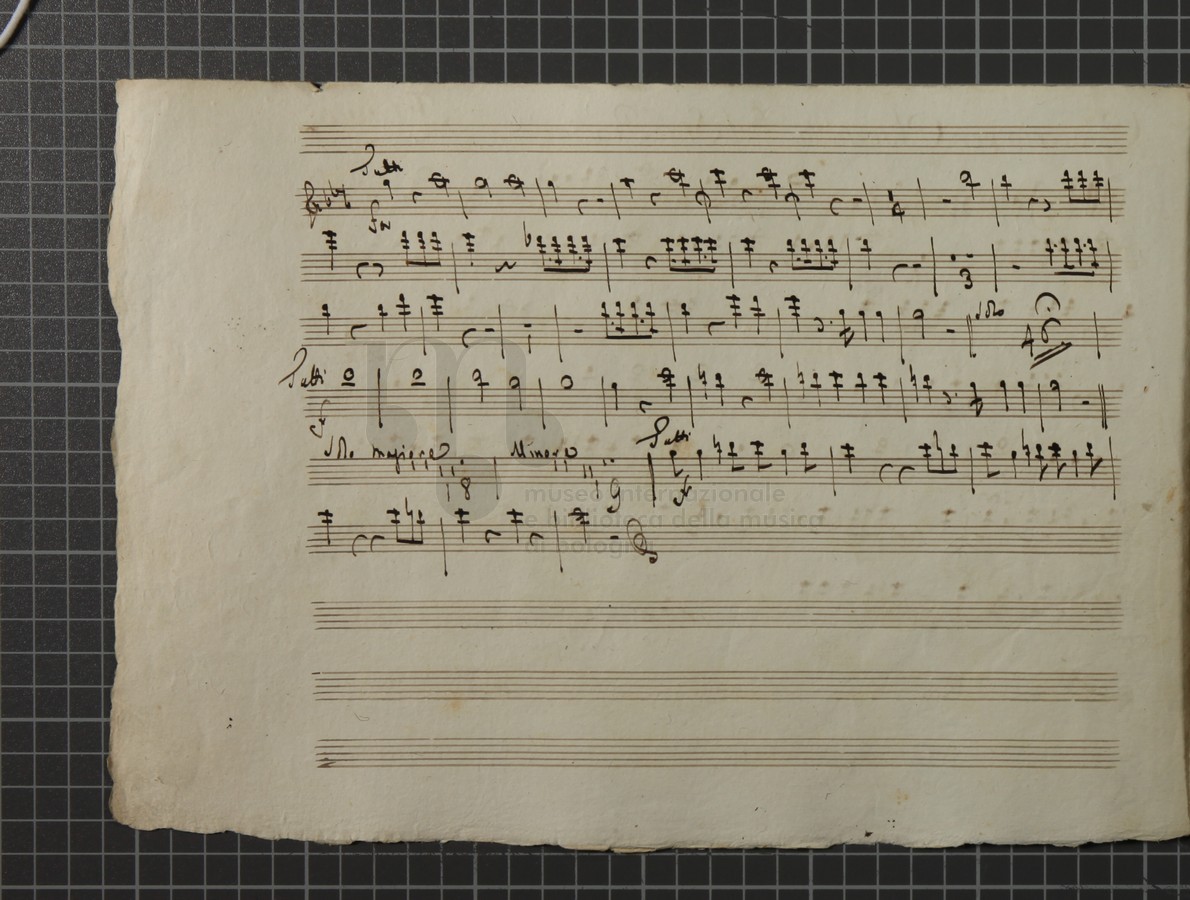 Tutti
4
3
Solo
46
Tutti
f
Solo magiore Minore Tutti
8 9 f
museo internazionale
e biblioteca della musica
di bologna